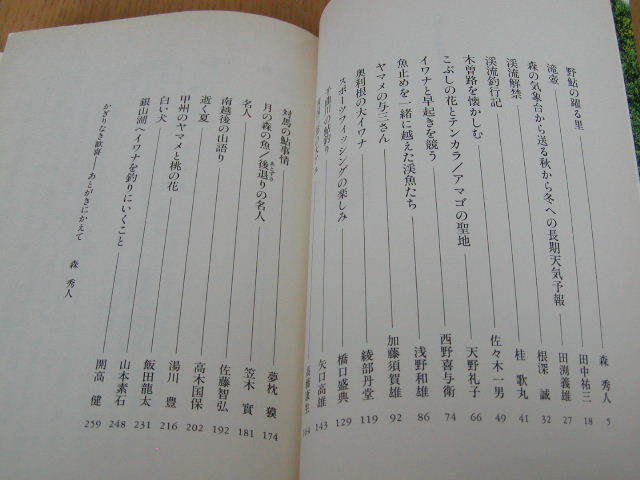 野鮎の躍る里 森 秀人 5
滝壺 田中祐三 18
森の気象台から送る秋から冬への長期天気予報 田渕義雄 27
渓流解禁 根深 誠 32
渓流釣行記 桂 歌丸 41
木曽路を懐かしむ 佐々木一男 49
こぶしの花とテンカラ/アマゴの聖地 天野礼子 66
イワナと早起きを競う 西野喜与衛 74
魚止めを一緒に越えた渓魚たち 浅野和雄 86
ヤマメの与三さん 加藤須賀雄 92
奥利根の大イワナ 綾部丹堂 119
スポーツフィッシングの楽しみ 橋口盛典 129
の鮎釣り 矢口高雄 143
対馬の鮎事情
月の森の魚/後退りの名人 夢枕 獏 174
あとずさ
名人 笠木 實 181
南越後の山語り 佐藤智弘 192
逝く夏 高木国保 202
甲州のヤマメと桃の花 湯川 豊 216
白い犬 飯田龍太 231
銀山湖へイワナを釣りにいくこと 山本素石 248
かぎりなき歓喜――あとがきにかえて 森 秀人
開高 健 259